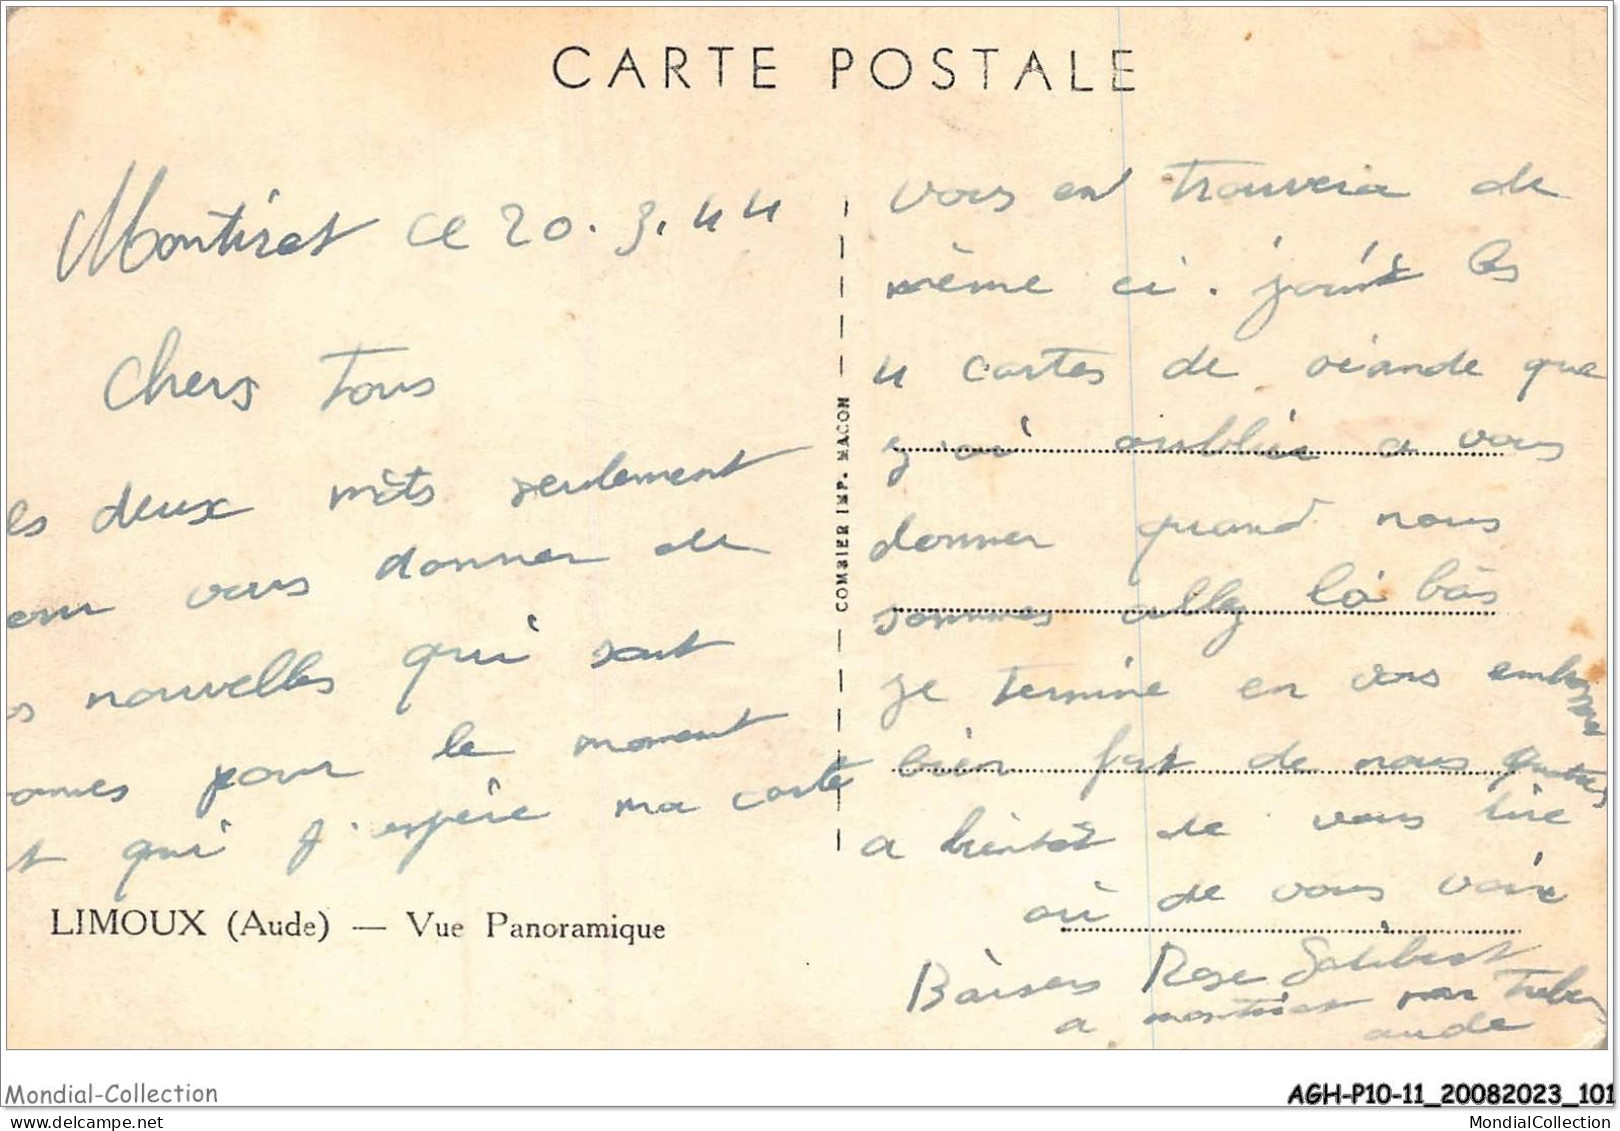 CARTE POSTALE
Montirat ce 20.3.44
Chers Tous
es deux mots seulement
our vous donner de
s nouvelles qui sont
onnes pour le moment
t qui j'espère ma carte
LIMOUX (Aude) — Vue Panoramique
COMBIER IMP. MACON
vous en trouvera de
même ci. joint les
4 cartes de viande que
j'ai oublier a vous
donner quand nous
sommes allez là bàs
je termine en vous
bien fort de nous quatres
a bientôt de vous lire
où de vous voir
Bàisers Rose
a montirat par Trebes
aude
Mondial-Collection
AGH-P10-11_20082023_101
MondialCollection